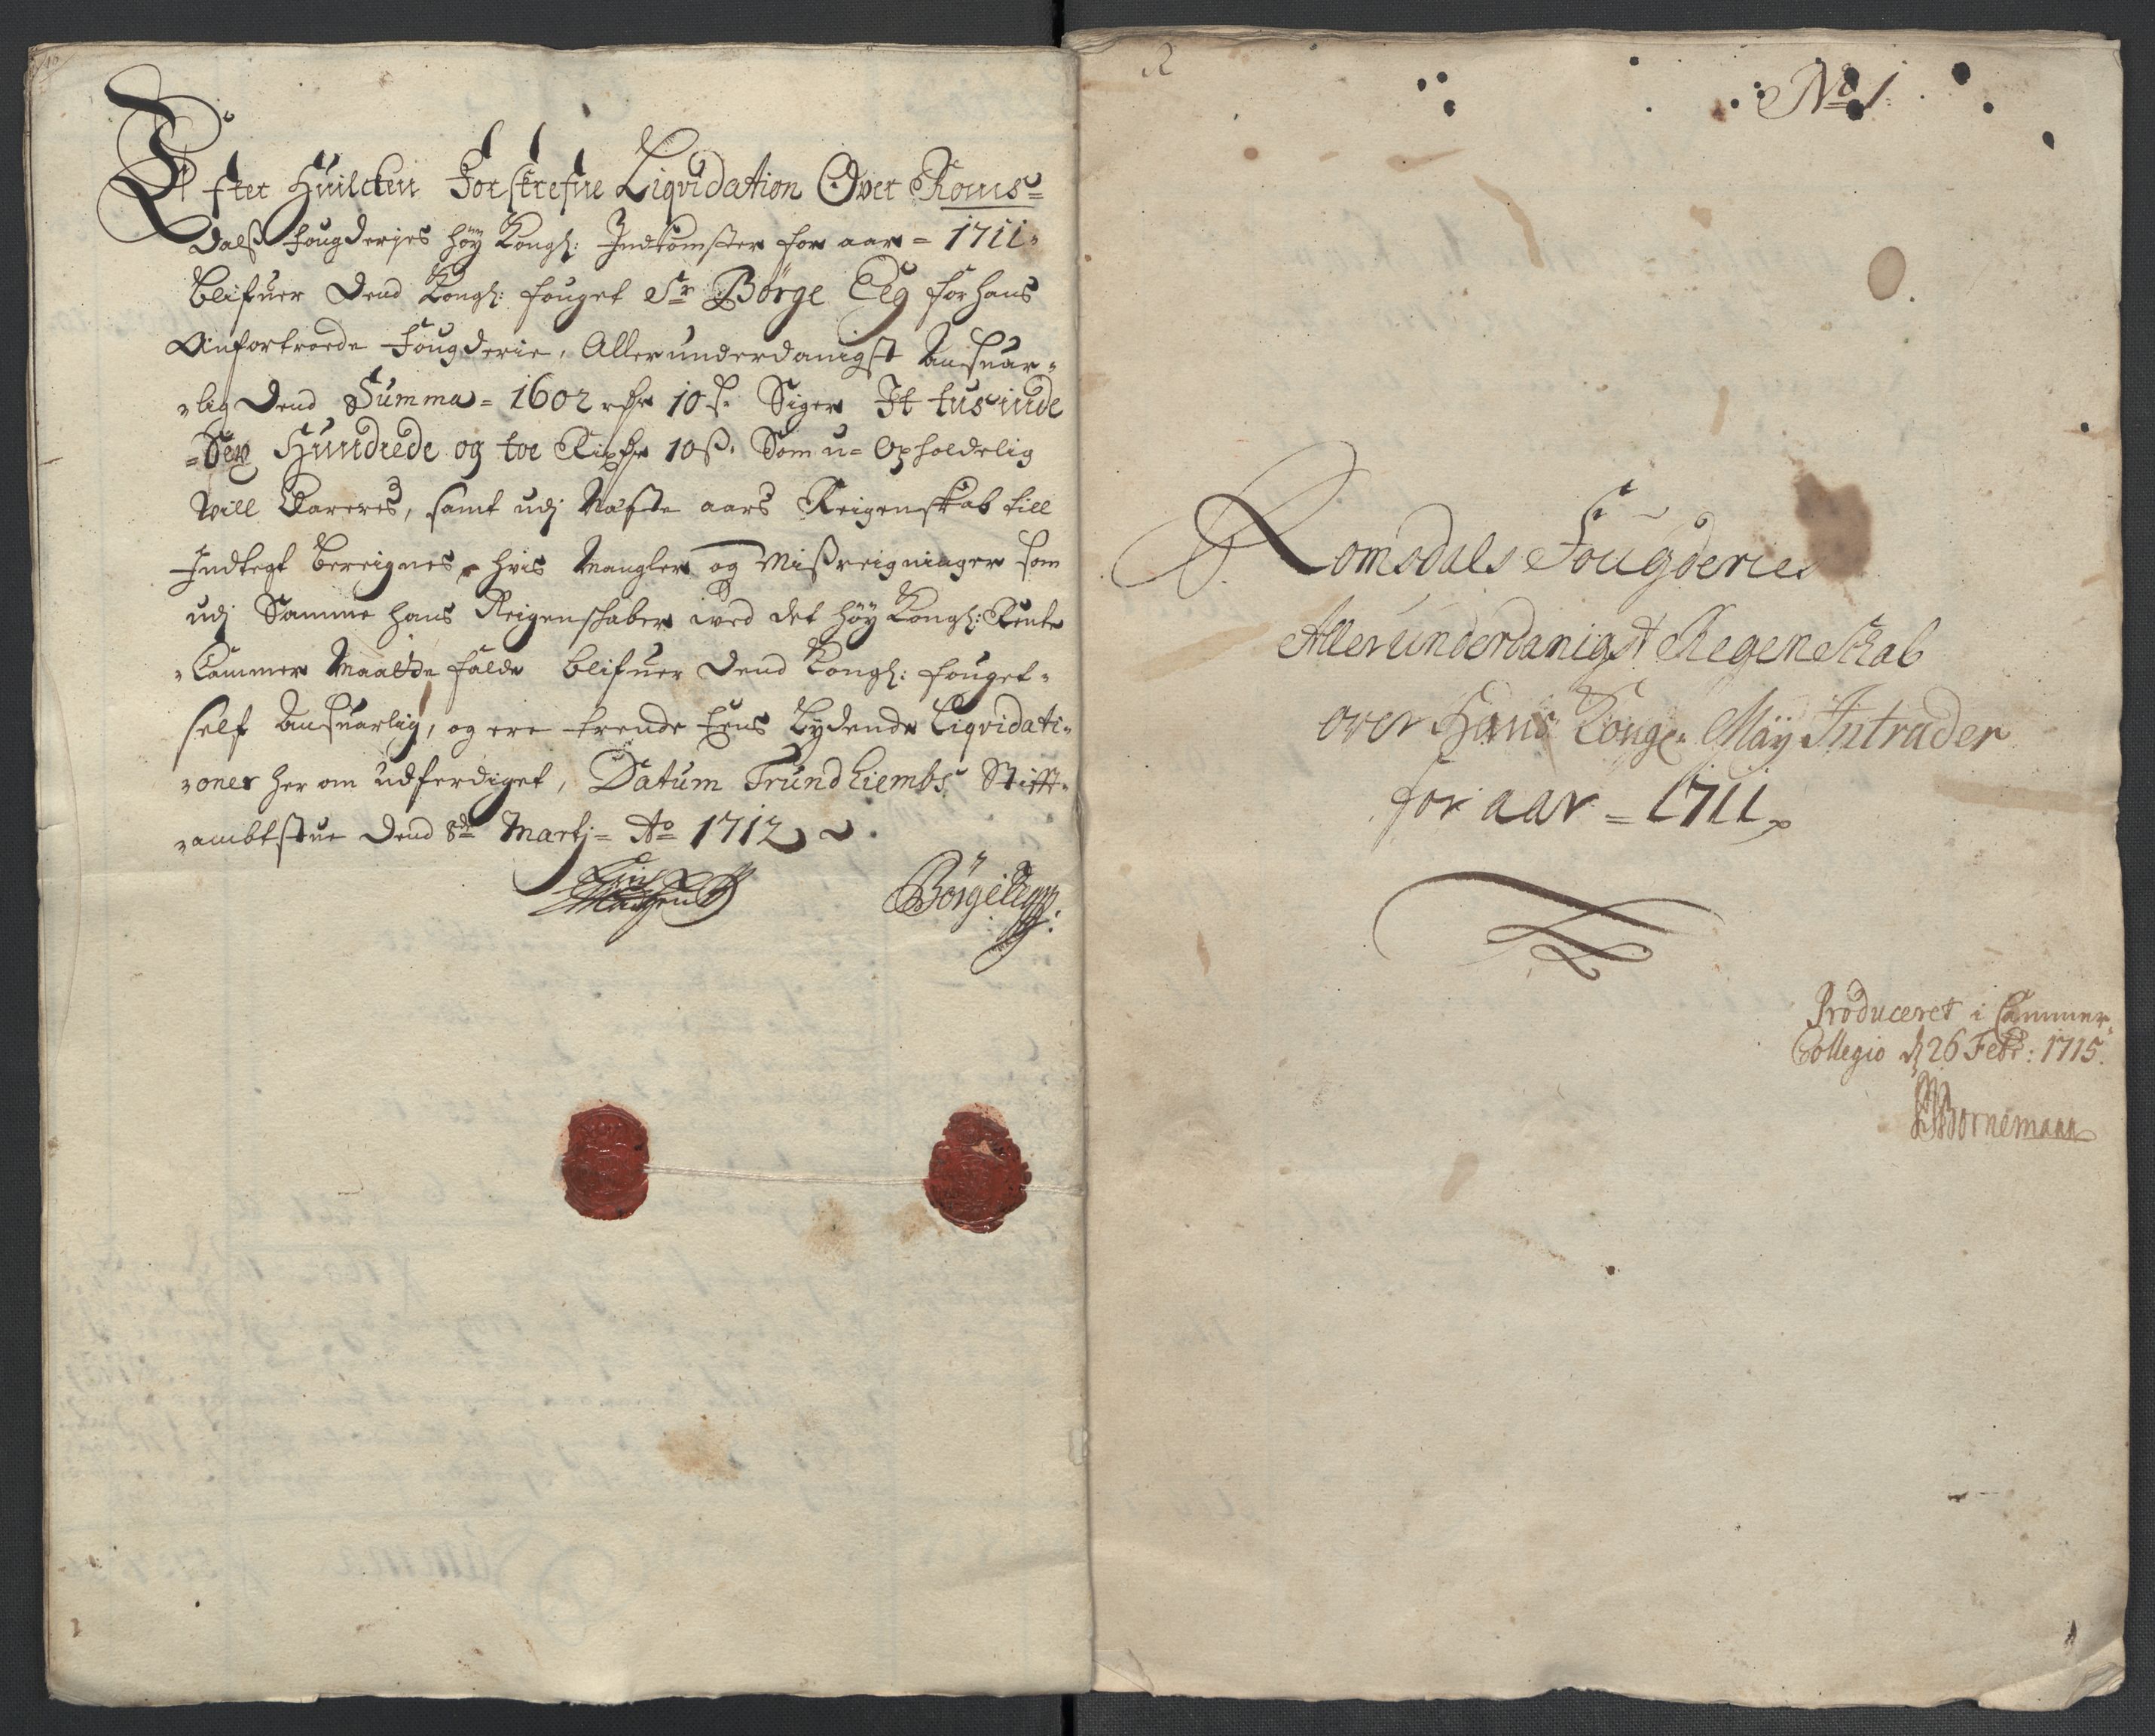 Efter Huilcken Forskrefne Liqvidation Over Roms=
dalß fougderjes höy Kongl: Indkomster for aar = 1711.
blifuer dend Kongl: fouget Sr Börge Eeg for hans
Anfortroede Fougderie, Allerunderdanigst Ansuar=
=lig dend Summa = 1602 rdr 10 ß. Siger It tusinde
=Sex Hundrede og toe Rixdr 10 ß. Som u=Opholdelig
will Clareres, samt udj Næste aars Reigenskab till
Indtegt bereignes, hvis Mangler og Mißreigninger som
udj Samme hans Reigenskaber wed det höy Kongl: Rente
=Cammer Maatte falde blifuer dend Kongl: fouget=
self Ansuarlig, og ere trende Eens lydende Liqvidati=
=oner her om udferdiget, Datum Trundhiembs Stifft=
=ambtstue dend 8de Martj = Ao 1712
Börge Eeg
No 1.
Romsdals Fougderies
Allerunderdanigst Regenskab
over Hans Kongl: May Intrader
for aar = 1711
Produceret i Cammer=
Collegio d 26 Febr: 1715.
Bornemann